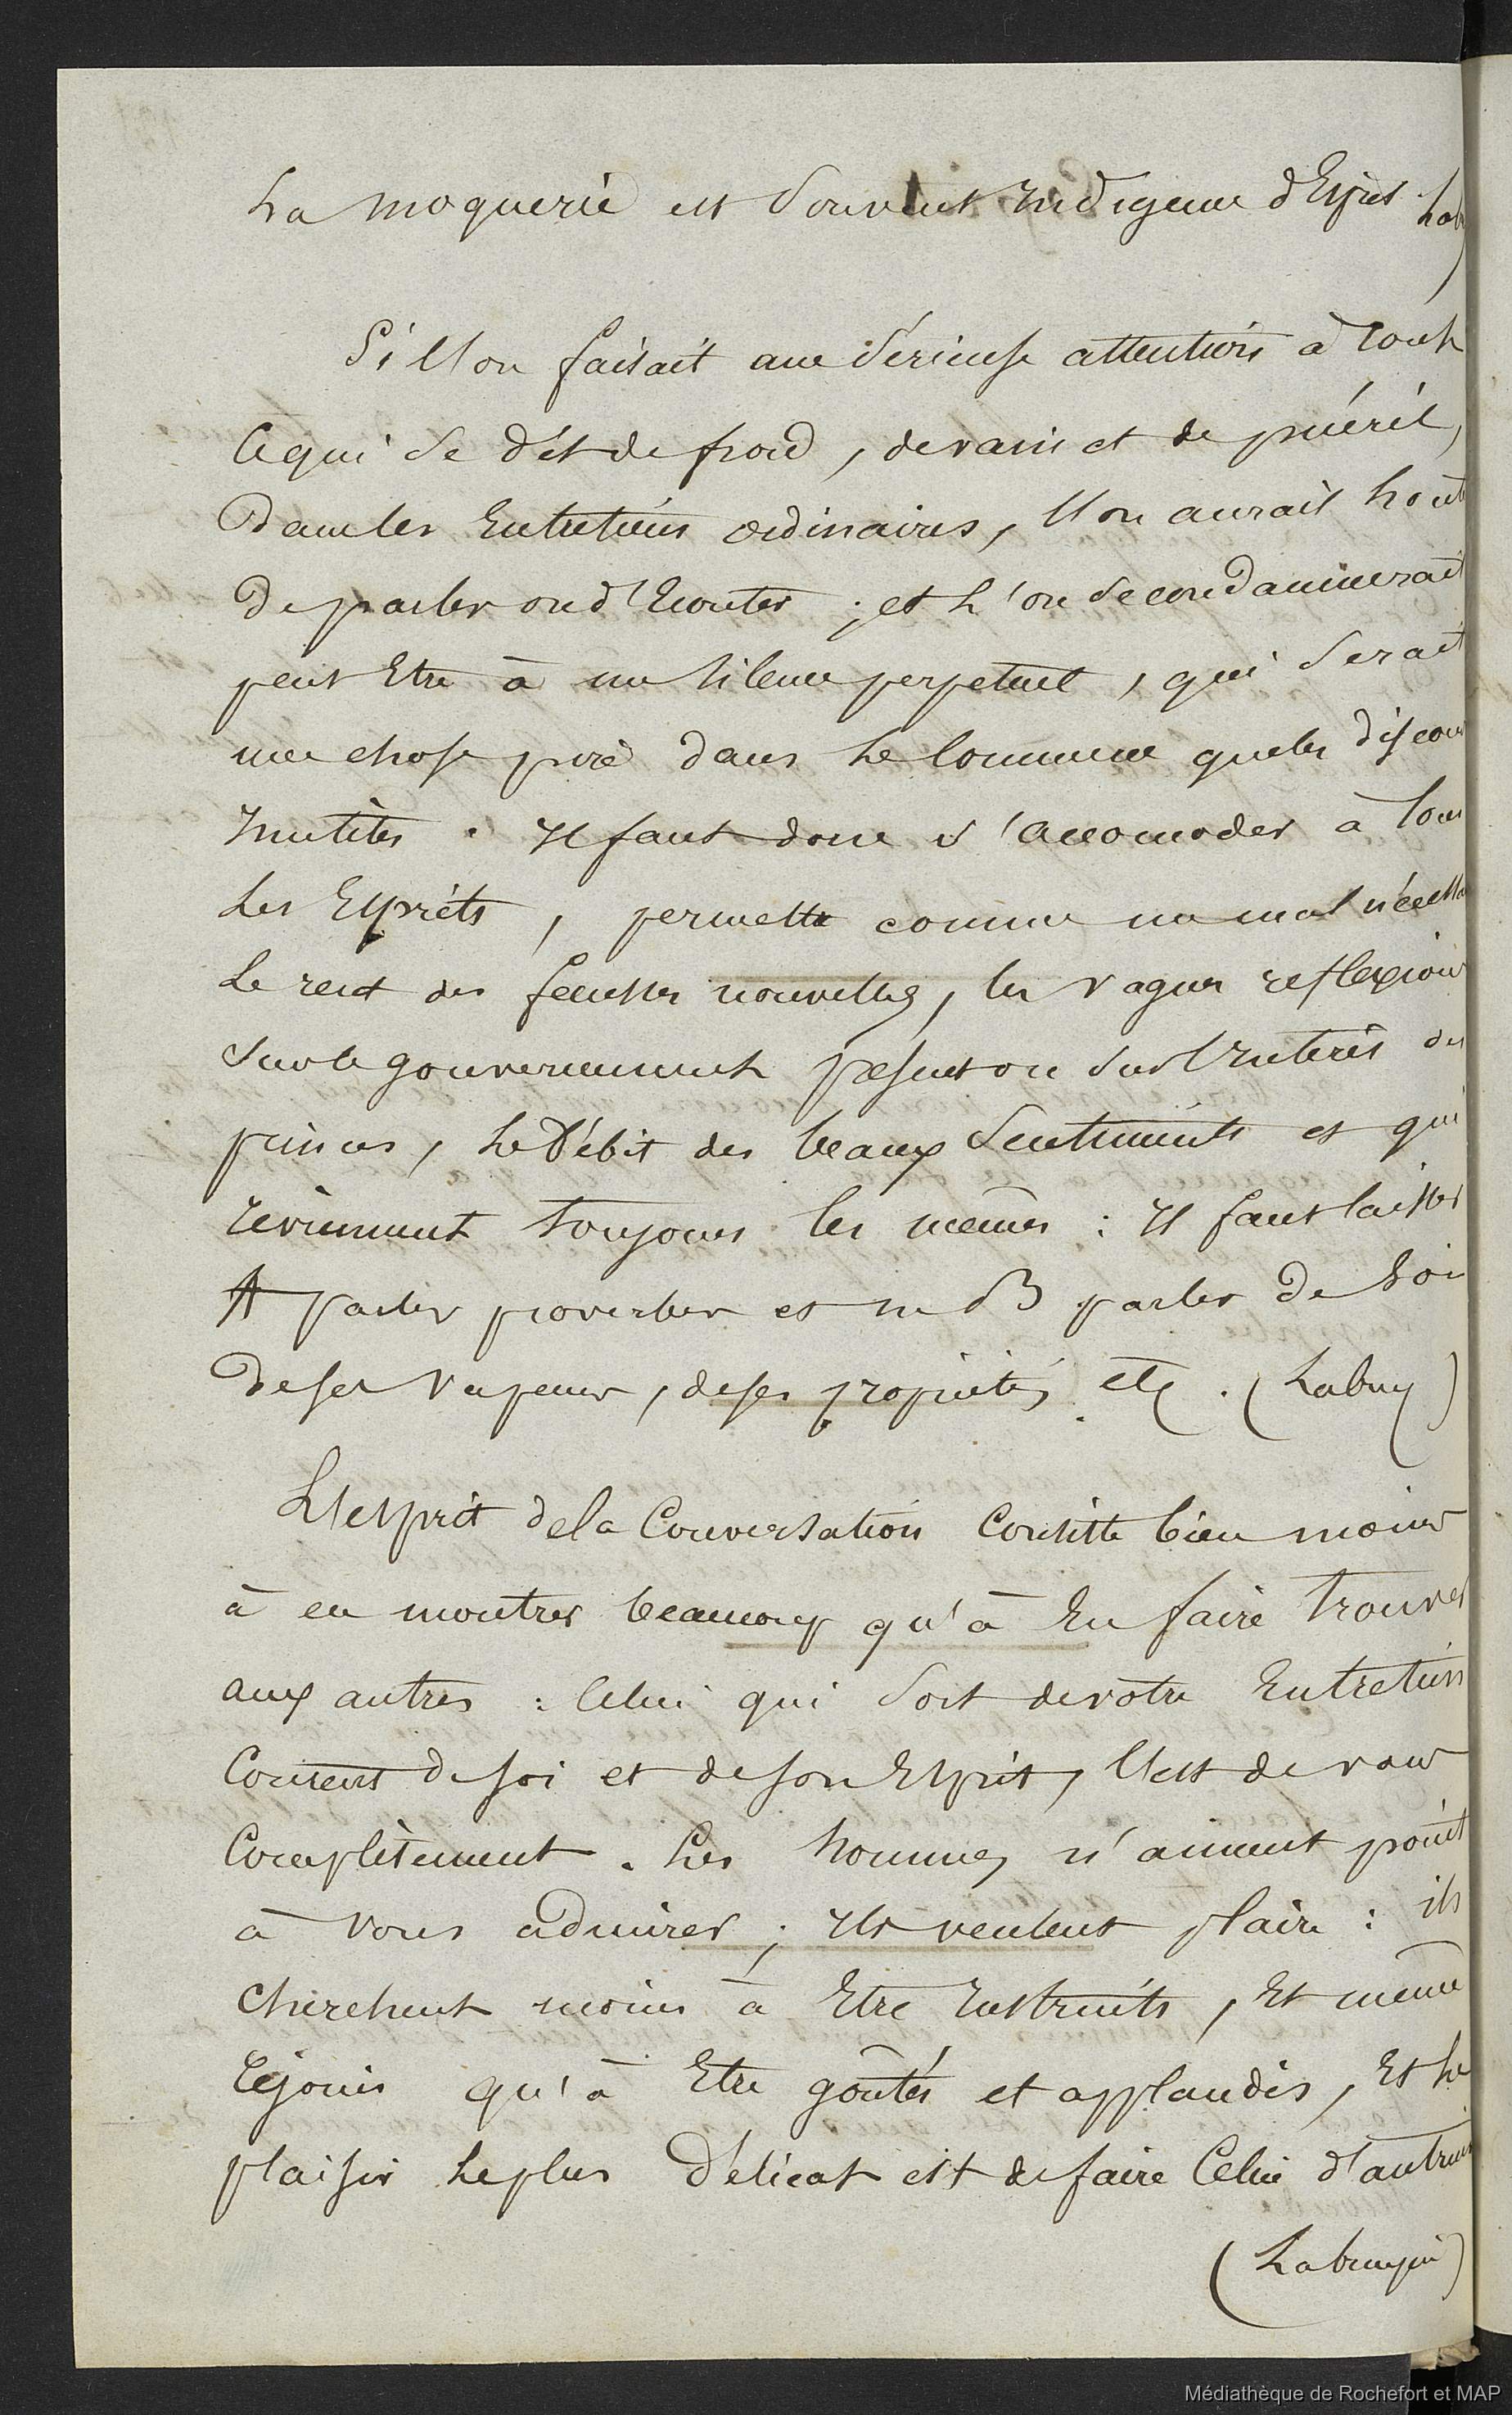 La moquerie est souvent Indigence d'Esprit. Lab)
Si l'on faisait une sérieuse attention à tout
Ce qui se dit de froid, de vain et de puéril,
Dans les Entretiens ordinaires, l'on aurait hont
De parler ou d'Ecouter ; et L'on se condamnerait
peut Etre à un silence perpetuel, qui serait
une chose pire dans Le Commerce que les discou
Inutiles. Il faut donc s'accomoder à tous
Les Esprits, permettre comme un mal nécessa
Le recit des fausses nouvelles, les vagues reflexions
Sur le gouvernement présent ou sur l'Interêt des
princes, Le Débit des beaux Sentiments et qui
reviennent toujours les mêmes : Il faut laisser
A parler proverbes et me B parler de Soi
De ses vapeurs, de ses propriétés etc. (Labruy)
L'esprit de la Conversation Consiste bien moins
à en montrer beaucoup qu'à En faire Trouver
aux autres : Celui qui Sort de votre Entretien
Content de soi et de son Esprit, l'est de vous
Complètement. Les hommes n'aiment point
à vous admirer ; Ils veulent plaire : ils
Cherchent moins à Etre Instruits, Et même
réjouis qu'à Etre goûtés et applaudis, Et Le
plaisir Le plus Délicat est de faire Celui d'autrui
(Labruyère)
Médiathèque de Rochefort et MAP